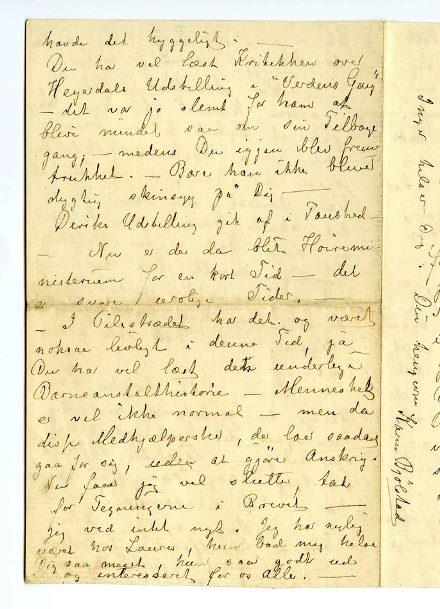 havde det hyggeligt. —
Du har vel læst Kritikken over
Heyerdals Udstilling i "Verdens Gang"
— det var jo slemt for ham at
blevi mindet saa om sin Tilbage
gang, — medens Du igjen blev frem
trukket. — Bare han ikke blevet
dygtig skinsyg på Dig —
Deriks Udstilling gik af i Taushed —
— Nu er da da blit Høiremi-
nisterium for en kort Tid — det
er svare urolige Tider. —
— I Pilestrædet har det og været
noksaa livligt i denne Tid, ja
Du har vel læst den underlige
Barneanstalthistorie — Mennesket
er vel ikke normal — men da
disse Medhjælperske, de lar saadant
gaa for sig, uden at gjøre Anskrig.
Nu faar jeg vel slutte, tak
for Tegningerne i Brevet —
jeg ved intet nyt. Jeg har nylig
været hos Laura, hun bad mig hilse
Dig saa meget, hun saa godt ud
og interesseret for os Alle. —
Inger hilser Dig.
Din hengivne Karen Bjølstad